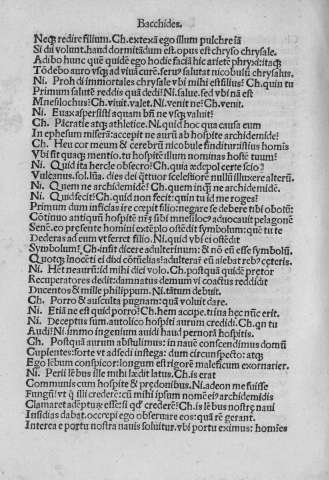 Bacchides.
Neqꝫ redire filium. Ch. extexā ego illum pulchre iā
Si dii volunt. haud dormitādum est. opus est chryso chrysale.
Adibo hunc quē quidē ego hodie faciā hic arietē phryxi: itaqꝫ
Tōdebo auro vsqꝫ ad viuā cutē. seruꝰ salutat nicobulū chrysalus.
Ni. Proh di immortales chrysale vbi mihi est filius? Ch. quin tu
Primum salutē reddis quā dedi? Ni. salue. sed vbi nā est
Mnesilochus? Ch. viuit. valet. Ni. venit ne? Ch. venit.
Ni. Euax aspersisti aquam. bn̄ ne vsqꝫ valuit?
Ch. Pācratie atqꝫ athletice. Ni. quid hoc qua causa eum
In ephesum miserā: accepit ne aurū ab hospite archidemide?
Ch. Heu cor meum & cerebrū nicobule finditur istius homis
Vbi sit quaqꝫ mentio. tu hospitē illum nominas hostē tuum?
Ni. Quid ita hercle obsecro? Ch. quia ædepol certe scio
Vulcanus. sol. lūa. dies dei q̄ttuor scelestiorē nullū illuxere alterū.
Ni. Quem ne archidemidē? Ch. quem inqꝫ ne archidemidē.
Ni. Quid fecit? Ch. quid non fecit: quin tu id me roges?
Primum dum inficias ire cœpit filio: negare se debere tibi obolū:
Cōtinuo antiquū hospitē nr̄ꝫ sibi mnesilocꝰ aduocauit pelagonē
Senē. eo presente homini extēplo ostēdit symbolum: quē tu te
Dederas ad eum vt ferret filio. Ni. quid vbi ei ostēdit
Symbolum? Ch. infit dicere adulterinum: & nō eū esse symbolū.
Quotqꝫ īnocēti ei dixit cōtumelias? adulterāꝫ eū aiebat rebꝰ ceteris.
Ni. Hēt ne aurū: id mihi dici volo. Ch. postqꝫā quidē pretor
Recuperatores dedit: damnatus demum vi coactus reddidit
Ducentos & mille philippum. Ni. tātum debuit.
Ch. Porro & ausculta pugnam: quā voluit dare.
Ni. Etiā ne est quid porro? Ch. hem accipe. trina hec nūc erit.
Ni. Deceptus sum. autolico hospiti aurum credidi. Ch. qn tu
Audi? Ni. immo ingenium auidi haud pernorā hospitis.
Ch. Postquā aurum abstulimus: in nauē conscendimus domū
Cupientes: forte vt adsedi instega: dum circūspecto: atqꝫ
Ego lēbum conspicor: longum est rigorē maleficum exornarier.
Ni. Perii lēbus ille mihi lædit latus. Ch. is erat
Communis cum hospite & prędonibus. Ni. adeon me fuisse
Fungū? vt q̄ illi crederē: cū mihi ipsum nomē ei⁹ archidemidis
Clamaret adēpturū esse: si qd crederē? Ch. is lēbus nostrę naui
Insidias dabat. occœpi ego obseruare eos: quā rē gerant.
Interea e portu nostra nauis soluitur. vbi portu eximus: homies